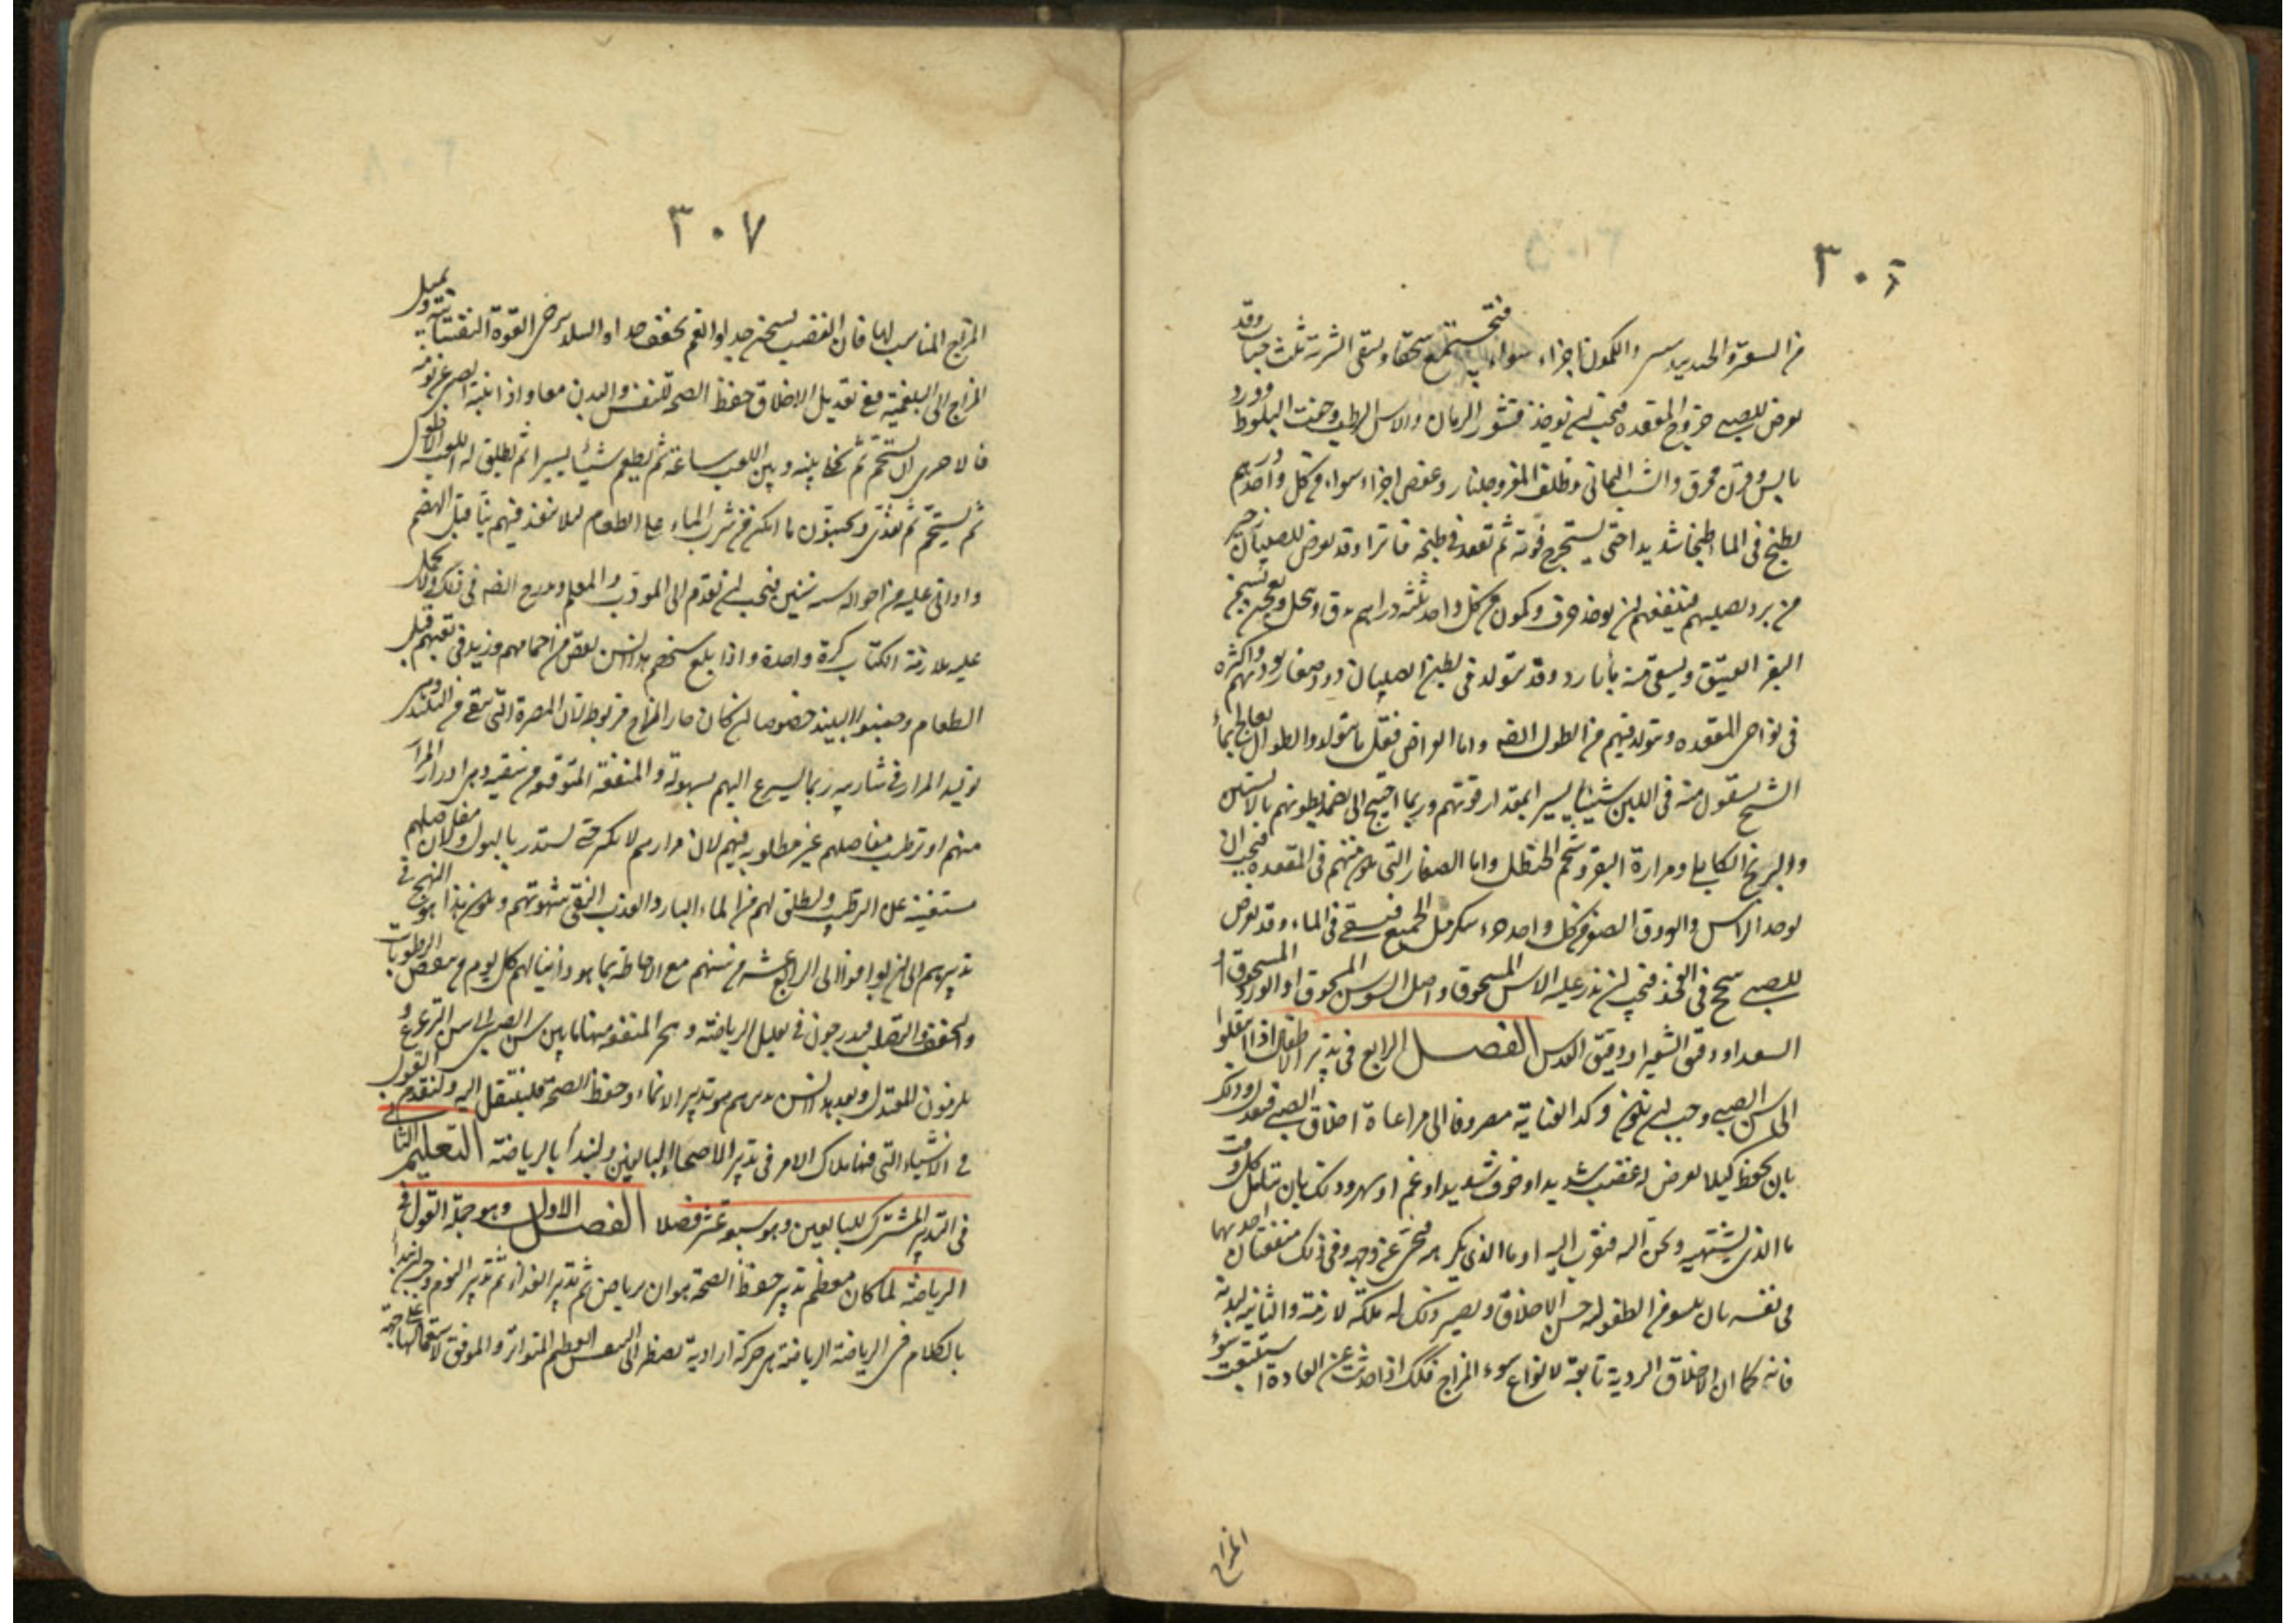 ٣٠٦
من السعتر والجندبيدستر والكمون اجزاء سواء يجمع سحقا ويسقى الشربة ثلث حبات وقد
يعرض للصبى خروج المقعدة فيجب ان يوخذ قشور الرمان والاس الرطب وجفت البلوط وورد
يابس وقرن محرق والشب اليمانى وظلف المعز وجلنار وعفص اجزاء سواء من كل واحد درهم
يطبخ فى الماء طبخا شديدا حتى يستخرج قوته ثم تقعد فى طبخه فاترا وقد يعرض للصبيان زحير
من برد يصيبهم فينفعهم ان يوخذ حرف وكمون من كل واحد ثلثة دراهم يدق وينخل ويعجن بسمن
البقر العتيق ويسقى منه بماء بارد وقد يتولد فى بطن الصبيان دود صغار يؤذيهم واكثره
فى نواحى المقعدة ويتولد فيهم من الطول ايضا واما العراض فقل ما يتولد والطوال يعالج بماء
الشيح يسقون منه فى اللبن شيئا يسيرا بمقدار قوتهم وربما احتيج الى ان يضمد بطونهم بالافسنتين
والبرنج الكابلى ومرارة البقر وشحم الحنظل واما الصغار التى تكون منهم فى المقعدة فيجب ان
يوخذ الراسن والعروق الصفر من كل واحد جزء سكر مثل الجميع فيسقى فى الماء وقد يعرض
للصبى سحج فى الفخذ فيجب ان يذر عليه الاس المسحوق واصل السوسن المسحوق او الورد المسحوق او
السعد او دقيق الشعير او دقيق العدس الفصل الرابع فى تدبير الاطفال اذا انتقلوا
الى سن الصبى وجب ان يكون وكد العناية مصروفا الى مراعاة اخلاق الصبى فيعدل وذلك
بان يحفظ كيلا يعرض له غضب شديد او خوف شديد او غم او سهر وذلك بان يتامل كل وقت
ما الذى يشتهيه ويحن اليه فيقرب اليه او ما الذى يكرهه فينحى عن وجهه وفى ذلك منفعتان احديهما
فى نفسه بان ينشو من الطفولة حسن الاخلاق ويصير ذلك له ملكة لازمة والثانية لبدنه
فانه كما ان الاخلاق الردية تابعة لانواع سوء المزاج فكذلك اذا حدثت عن العادة استتبعت سوء
المزاج
٣٠٧
المزاج المناسب لها فان الغضب يسخن جدا والغم يجفف جدا والتبليد يرخى القوة النفسانية ويميل
المزاج الى البلغمية ففى تعديل الاخلاق حفظ الصحة للنفس والبدن معا واذا انتبه الصبى من نومه
فالاحرى ان يستحم ثم يخلى بينه وبين اللعب ساعة ثم يطعم شيئا يسيرا ثم يطلق له اللعب الاطول
ثم يستحم ثم يغذى ويجنبون ما امكن من شرب الماء على الطعام لئلا ينفذ فيهم نيئا قبل الهضم
واذا اتى عليه من احواله ست سنين فيجب ان يقدم الى المودب والمعلم ويدرج ايضا فى ذلك ولا يحمل
عليه ملازمة الكتاب كرة واحدة واذا بلغ سنهم هذا السن نقص من احمامهم وزيد فى تعبهم قبل
الطعام وجنبوا النبيذ خصوصا ان كان حار المزاج مرطوبه لان المضرة التى تتقى من النبيذ وهى
توليد المرار فى شاربيه ربما يسرع اليهم بسهولة والمنفعة المتوقعة من سقيه وهى ادرار المرار
منهم او ترطيب مفاصلهم غير مطلوبة فيهم لان مرارهم لا يكثر حتى يستدر بالبول ولان مفاصلهم
مستغنية عن الترطيب ويطلق لهم من الماء البارد العذب النقى شهوتهم ويكون هذا هو النهج فى
تدبيرهم الى ان يوافوا الى الرابع عشر من سنهم مع الاحاطة بما هو ذاتى لهم كل يوم من تنقص الرطوبات
والتجفف والتصلب فيدرجون فى تقليل الرياضة وهجر المعنفة منها ما بين سن الصبى الى سن الترعرع و
يلزمون المعتدل وبعد هذا السن تدبيرهم هو تدبير الانماء وحفظ الصحة فلننتقل اليه ولنقدم القول
فى الاشياء التى فيها ملاك الامر فى تدبير الاصحاء البالغين ولنبدأ بالرياضة التعليم الثانى
فى التدبير المشترك للبالغين وهو سبعة عشر فصلا الفصل الاول وهو جملة القول فى
الرياضة لما كان معظم تدبير حفظ الصحة هو ان يرتاض ثم تدبير الغذاء ثم تدبير النوم وجب ان نبدأ
بالكلام فى الرياضة الرياضة هى حركة ارادية تضطر الى التنفس العظيم المتواتر والموفق لاستعمالها على جهة